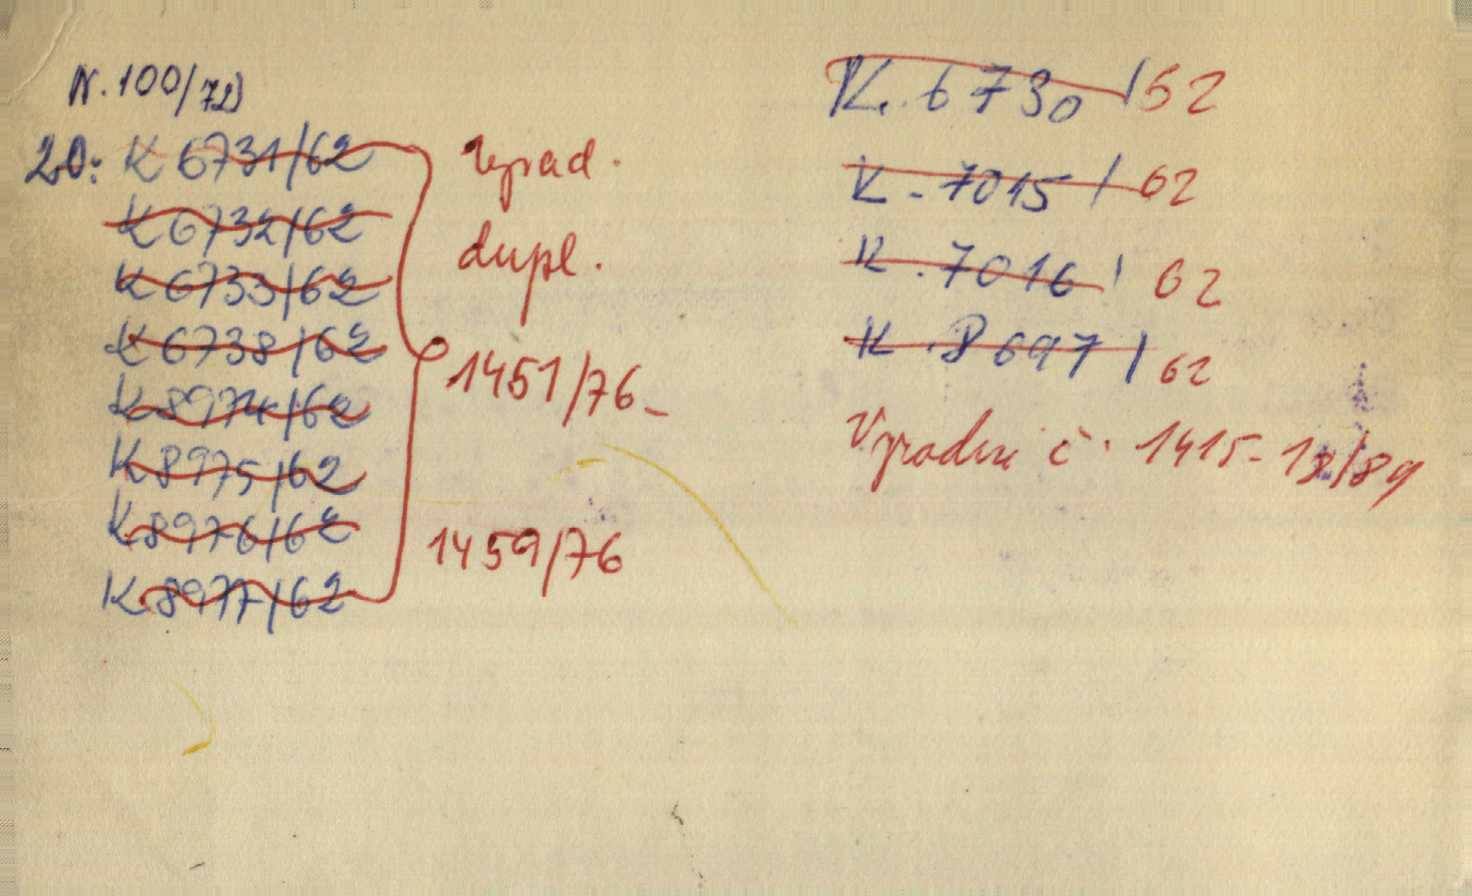 N. 100/72
20: K 6731/62
K 6732/62
K 6733/62
K 6738/62
K 8974/62
K 8975/62
K 8976/62
K 8977/62
dupl.
1451/76-
1459/76
K. 6730/62
K - 7015/62
K. 7016/62
K. 8697/62
č. 1415-18/89